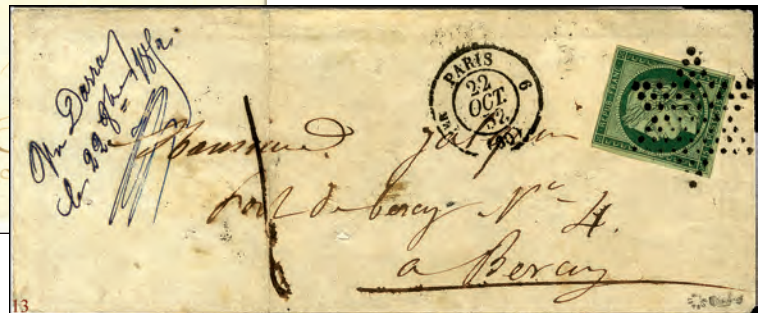 le 22 8bre 1852.
PARIS
22
OCT.
52
(60)
6
Monsieur
Port de bercy No 4.
a Bercy
1
13